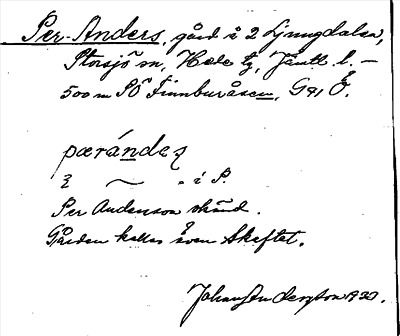 Per-Anders, gård i 2 Ljungdalen,
Storsjö sn, Hede tg, Jämtl. l. –
500 m SÖ Finnburåsen, G41 Ö.
pærándeʒ
ʒ ~ „ i P.
Per Anderson okänd.
Gården kallas även Skeftet.
Johan Anderston 1933.